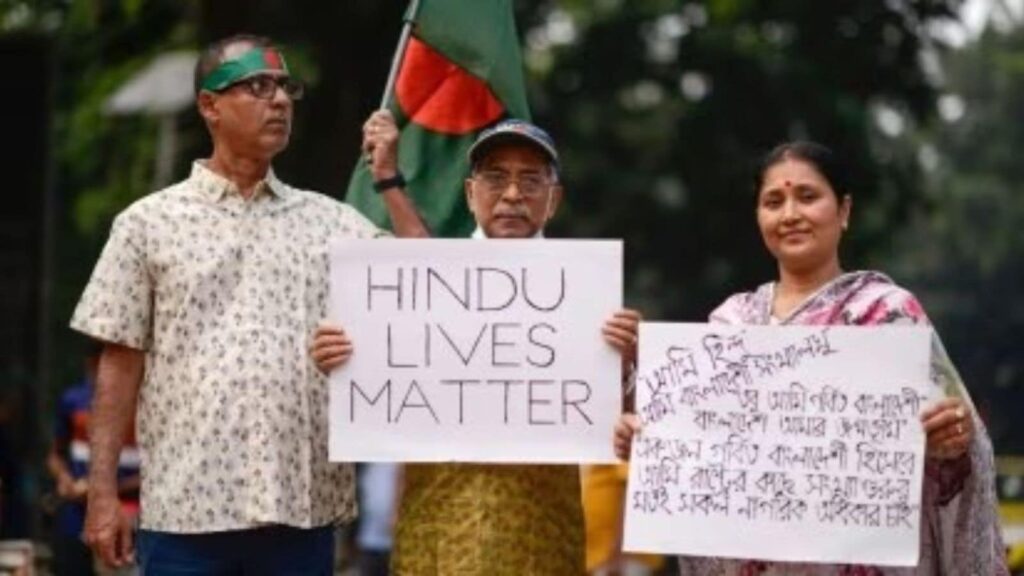 HINDU
LIVES
MATTER
আমি হিন্দু
আমি বাংলাদেশী সংখ্যালঘু
আমি গর্বিত বাংলাদেশী
বাংলাদেশ আমার জন্মভূমি
একজন গর্বিত বাংলাদেশী হিসেবে
আমি রাষ্ট্রের কাছে সংখ্যাগুরুর
মতই সকল নাগরিক অধিকার চাই